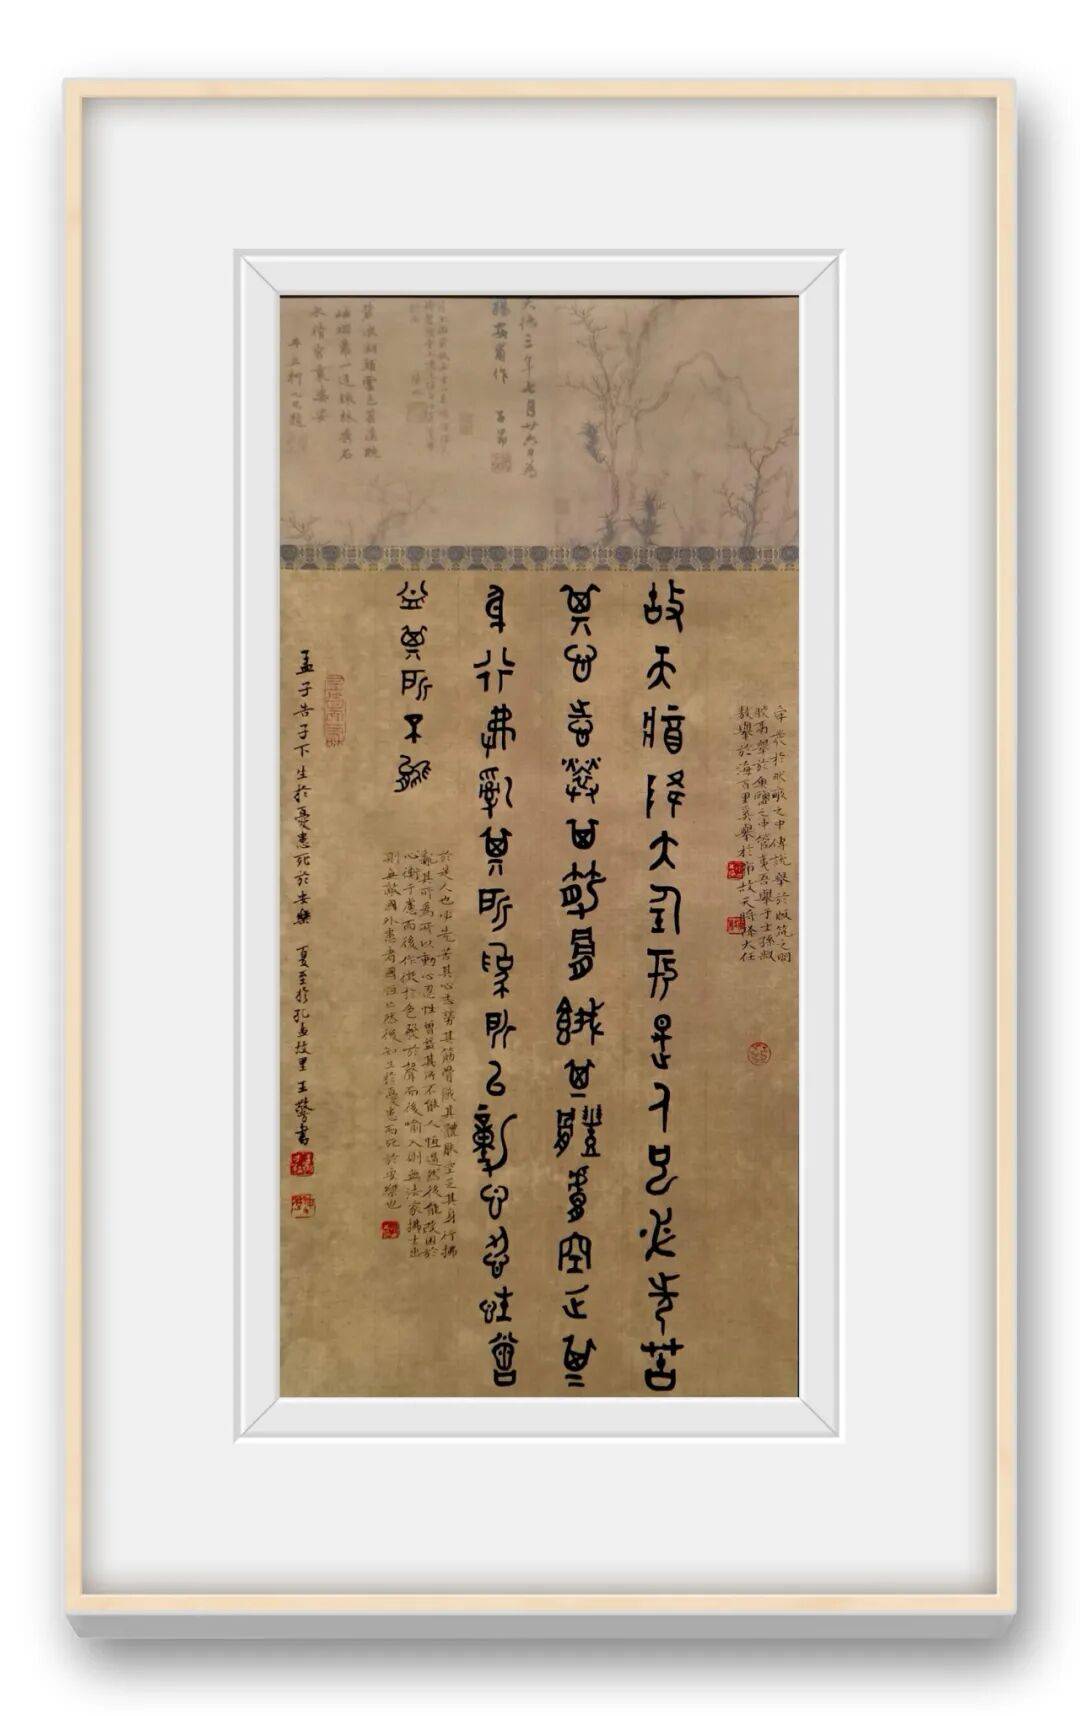 大德三年七月廿六日為
楊安甫作 子昂
舜發於畎畝之中傅說舉於版築之間
膠鬲舉於魚鹽之中管夷吾舉于士孫叔
敖舉於海百里奚舉於市故天將降大任
故天將降大任於是人也必先苦
其心志勞其筋骨餓其體膚空乏其
身行弗亂其所為所以動心忍性曾
益其所不能
於是人也必先苦其心志勞其筋骨餓其體膚空乏其身行拂
亂其所為所以動心忍性曾益其所不能人恒過然後能改困於
心衡于慮而後作徵於色發於聲而後喻入則無法家拂士出
則無敵國外患者國恒亡然後知生於憂患而死於安樂也
孟子告子下生於憂患死於安樂 夏至於孔孟故里王警書